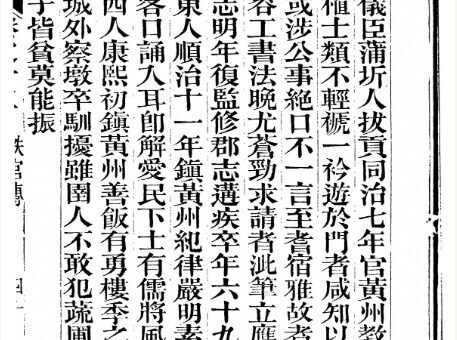 儀臣蒲圻人拔貢同治七年官黃州教
植士類不輕褫一衿遊於門者咸知以
或涉公事絕口不一言至耆宿雅故者
容工書法晚尤蒼勁求請者泚筆立應
志明年復監修郡志遘疾卒年六十九
東人順治十一年鎮黃州紀律嚴明素
客口誦入耳卽解愛民下士有儒將風
西人康熙初鎮黃州善飯有勇樓季之
城外察墩卒馴擾雖圉人不敢犯蔬圃
子皆貧莫能振